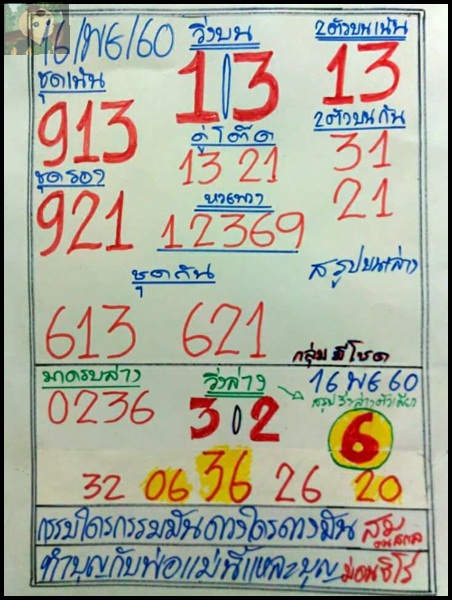 16/พ.ย/60 วิ่งบน 2ตัวบนเน้น
ชุดเน้น 1 3 13
913 คู่โต๊ด 2ตัวบนกัน
13 21 31
ชุดรอง หาพวง 21
921 12369
ชุดกัน สรุปบนล่าง
613 621
กลุ่มมีโชค
มาครบล่าง วิ่งล่าง 16 พ.ย 60
0236 3 2 สรุปวิ่งล่างตัวเดียว
6
32 06 36 26 20
กรรมใครกรรมมันดวงใครดวงมัน
ทำบุญกับพ่อแม่นี่แหละบุญ